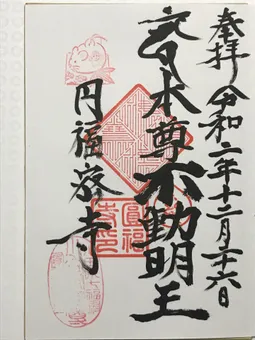 奉拝 令和二年十二月二十六日
本尊不動明王
円福密寺